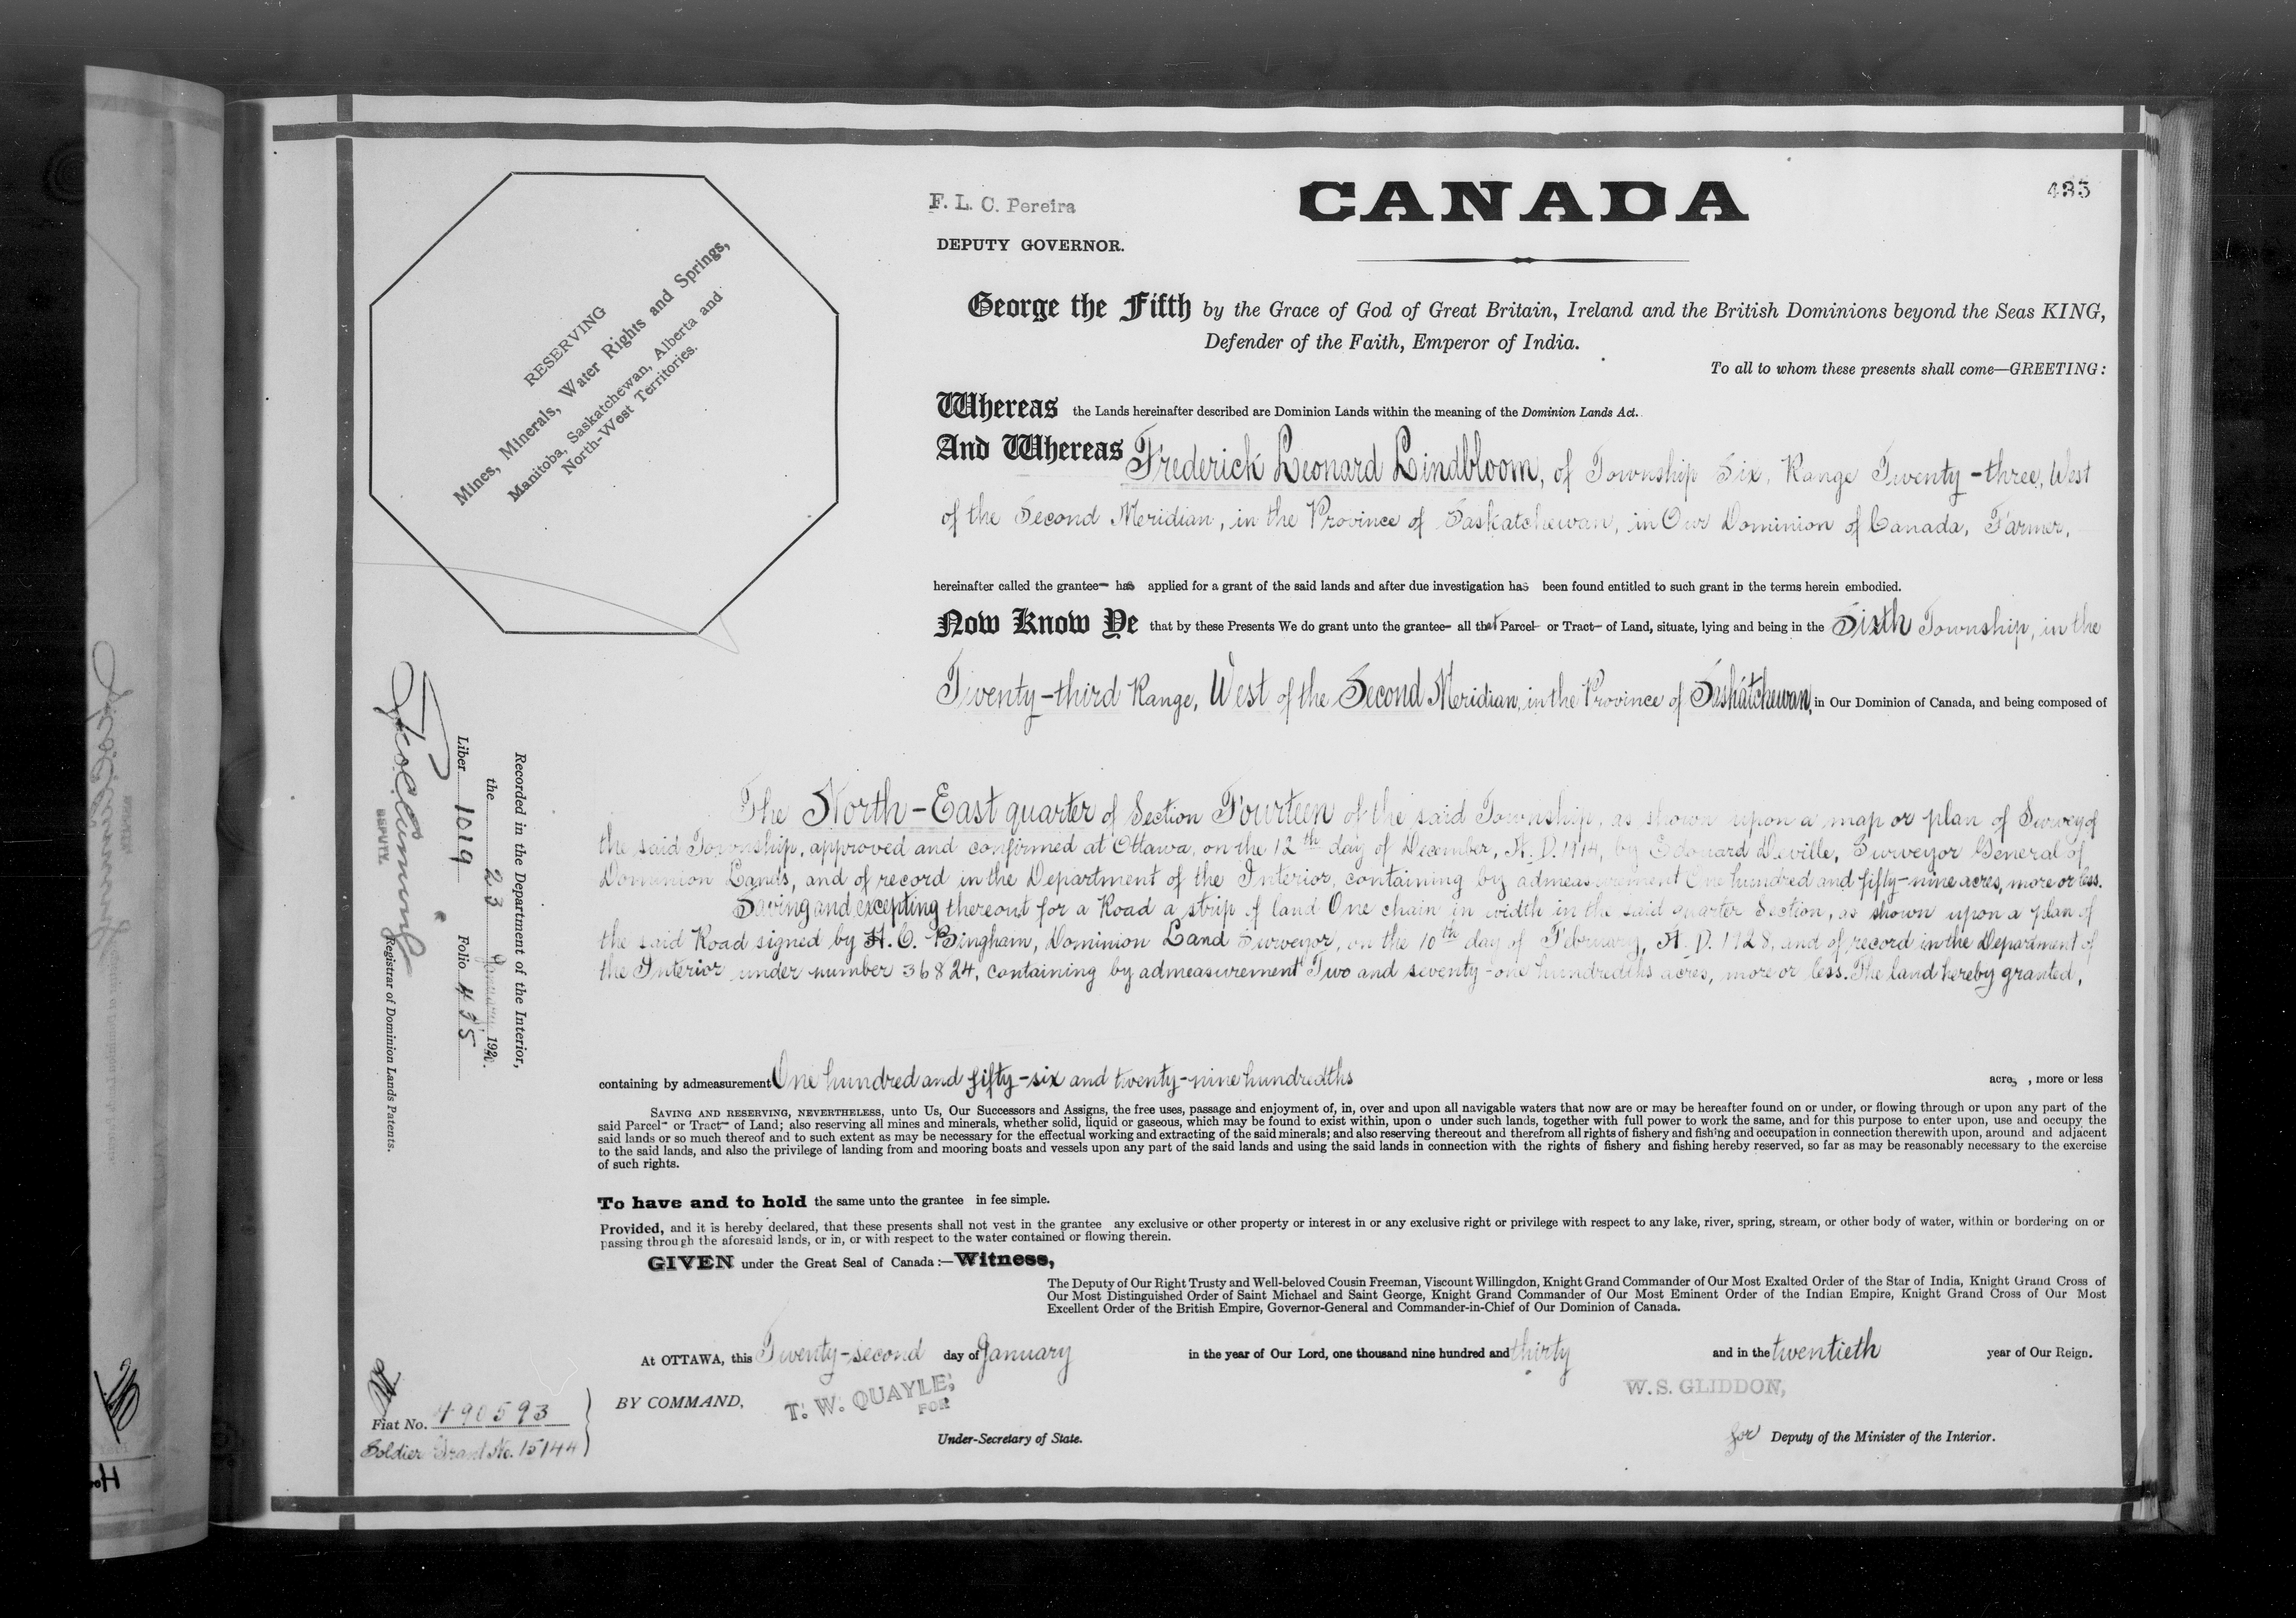 F. L. C. Pereira
DEPUTY GOVERNOR.
CANADA
485
RESERVING
Mines, Minerals, Water Rights and Springs,
Manitoba, Saskatchewan, Alberta and
North-West Territories.
George the Fifth by the Grace of God of Great Britain, Ireland and the British Dominions beyond the Seas KING,
Defender of the Faith, Emperor of India.
To all to whom these presents shall come—GREETING:
Whereas the Lands hereinafter described are Dominion Lands within the meaning of the Dominion Lands Act.
And Whereas Frederick Leonard Lindbloom, of Township Six, Range Twenty-three, West
of the Second Meridian, in the Province of Saskatchewan, in Our Dominion of Canada, Farmer,
hereinafter called the grantee has applied for a grant of the said lands and after due investigation has been found entitled to such grant in the terms herein embodied.
Now Know Ye that by these Presents We do grant unto the grantee all that Parcel or Tract of Land, situate, lying and being in the Sixth Township, in the
Twenty-third Range, West of the Second Meridian, in the Province of Saskatchewan, in Our Dominion of Canada, and being composed of
The North-East quarter of Section Fourteen of the said Township, as shown upon a map or plan of Survey of
the said Township, approved and confirmed at Ottawa, on the 12th day of December, A. D. by Edouard Deville, Surveyor General of
Dominion Lands, and of record in the Department of the Interior, containing by admeasurement One hundred and fifty-nine acres, more or less.
Saving and excepting thereout for a Road a strip of land One chain in width in the said quarter Section, as shown upon a plan of
the said Road signed by Bingham, Dominion Land Surveyor, on the 10th day of February, A. D. 1928, and of record in the Department of
the Interior under number 36824, containing by admeasurement Two and seventy-one hundredths acres, more or less. The land hereby granted,
containing by admeasurement One hundred and fifty-six and twenty-nine hundredths acres, more or less
SAVING AND RESERVING, NEVERTHELESS, unto Us, Our Successors and Assigns, the free uses, passage and enjoyment of, in, over and upon all navigable waters that now are or may be hereafter found on or under, or flowing through or upon any part of the
said Parcel or Tract of Land; also reserving all mines and minerals, whether solid, liquid or gaseous, which may be found to exist within, upon o under such lands, together with full power to work the same, and for this purpose to enter upon, use and occupy the
said lands or so much thereof and to such extent as may be necessary for the effectual working and extracting of the said minerals; and also reserving thereout and therefrom all rights of fishery and fishing and occupation in connection therewith upon, around and adjacent
to the said lands, and also the privilege of landing from and mooring boats and vessels upon any part of the said lands and using the said lands in connection with the rights of fishery and fishing hereby reserved, so far as may be reasonably necessary to the exercise
of such rights.
To have and to hold the same unto the grantee in fee simple.
Provided, and it is hereby declared, that these presents shall not vest in the grantee any exclusive or other property or interest in or any exclusive right or privilege with respect to any lake, river, spring, stream, or other body of water, within or bordering on or
passing through the aforesaid lands, or in, or with respect to the water contained or flowing therein.
GIVEN under the Great Seal of Canada:—Witness,
The Deputy of Our Right Trusty and Well-beloved Cousin Freeman, Viscount Willingdon, Knight Grand Commander of Our Most Exalted Order of the Star of India, Knight Grand Cross of
Our Most Distinguished Order of Saint Michael and Saint George, Knight Grand Commander of Our Most Eminent Order of the Indian Empire, Knight Grand Cross of Our Most
Excellent Order of the British Empire, Governor-General and Commander-in-Chief of Our Dominion of Canada.
At OTTAWA, this Twenty-second day of January in the year of Our Lord, one thousand nine hundred and thirty and in the twentieth year of Our Reign.
BY COMMAND,
T. W. QUAYLE,
FOR
Under-Secretary of State.
W. S. GLIDDON,
for Deputy of the Minister of the Interior.
Recorded in the Department of the Interior,
the 23 January 1930.
Liber 1019 Folio 485
DEPUTY. Registrar of Dominion Lands Patents.
Fiat No. 490593
Soldier Grant No. 15144